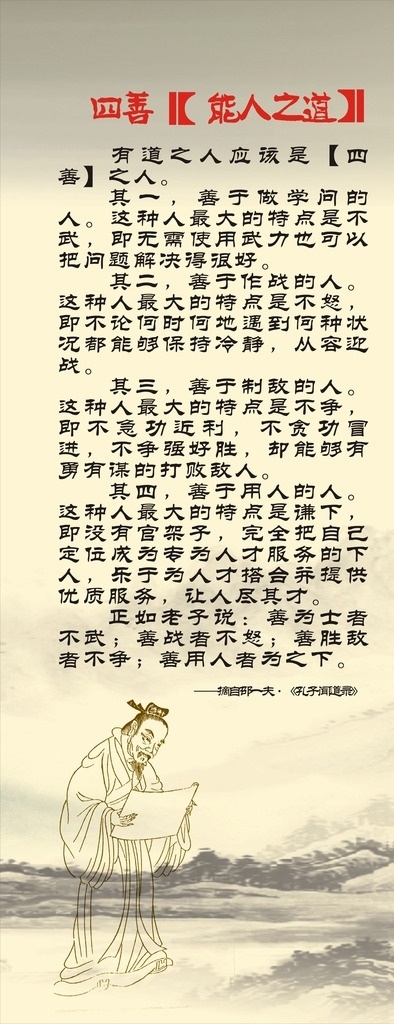 四善【能人之道】
有道之人应该是【四
善】之人。
其一，善于做学问的
人。这种人最大的特点是不
武，即无需使用武力也可以
把问题解决得很好。
其二，善于作战的人。
这种人最大的特点是不怒，
即不论何时何地遇到何种状
况都能够保持冷静，从容迎
战。
其三，善于制敌的人。
这种人最大的特点是不争，
即不急功近利，不贪功冒
进，不争强好胜，却能够有
勇有谋的打败敌人。
其四，善于用人的人。
这种人最大的特点是谦下，
即没有官架子，完全把自己
定位成为专为人才服务的下
人，乐于为人才搭台并提供
优质服务，让人尽其才。
正如老子说：善为士者
不武；善战者不怒；善胜敌
者不争；善用人者为之下。
——摘自邵一夫·《孔子闻道录》